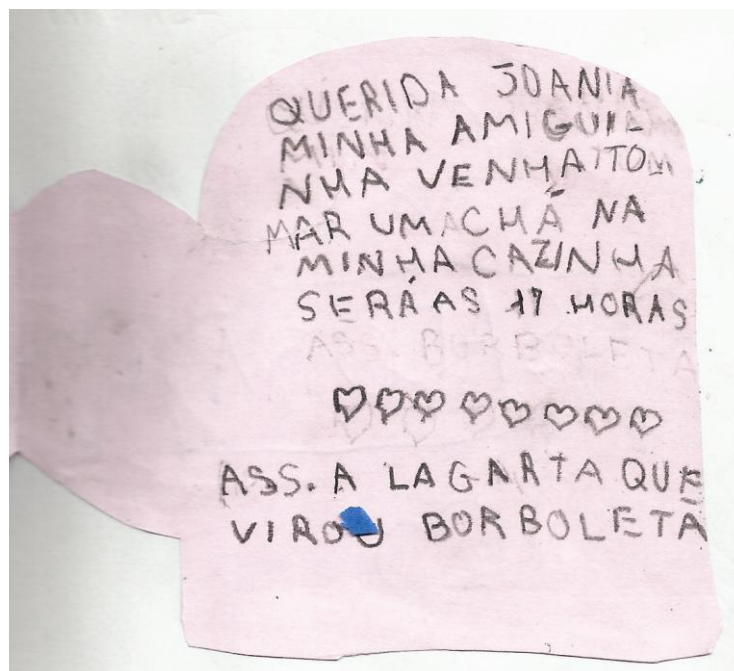 QUERIDA JOANIA
MINHA AMIGUI-
NHA VENHA TO
MAR UM CHÁ NA
MINHA CAZINHA
SERÁ AS 17 HORAS
ASS. BORBOLETA
ASS. A LAGARTA QUE
VIROU BORBOLETA